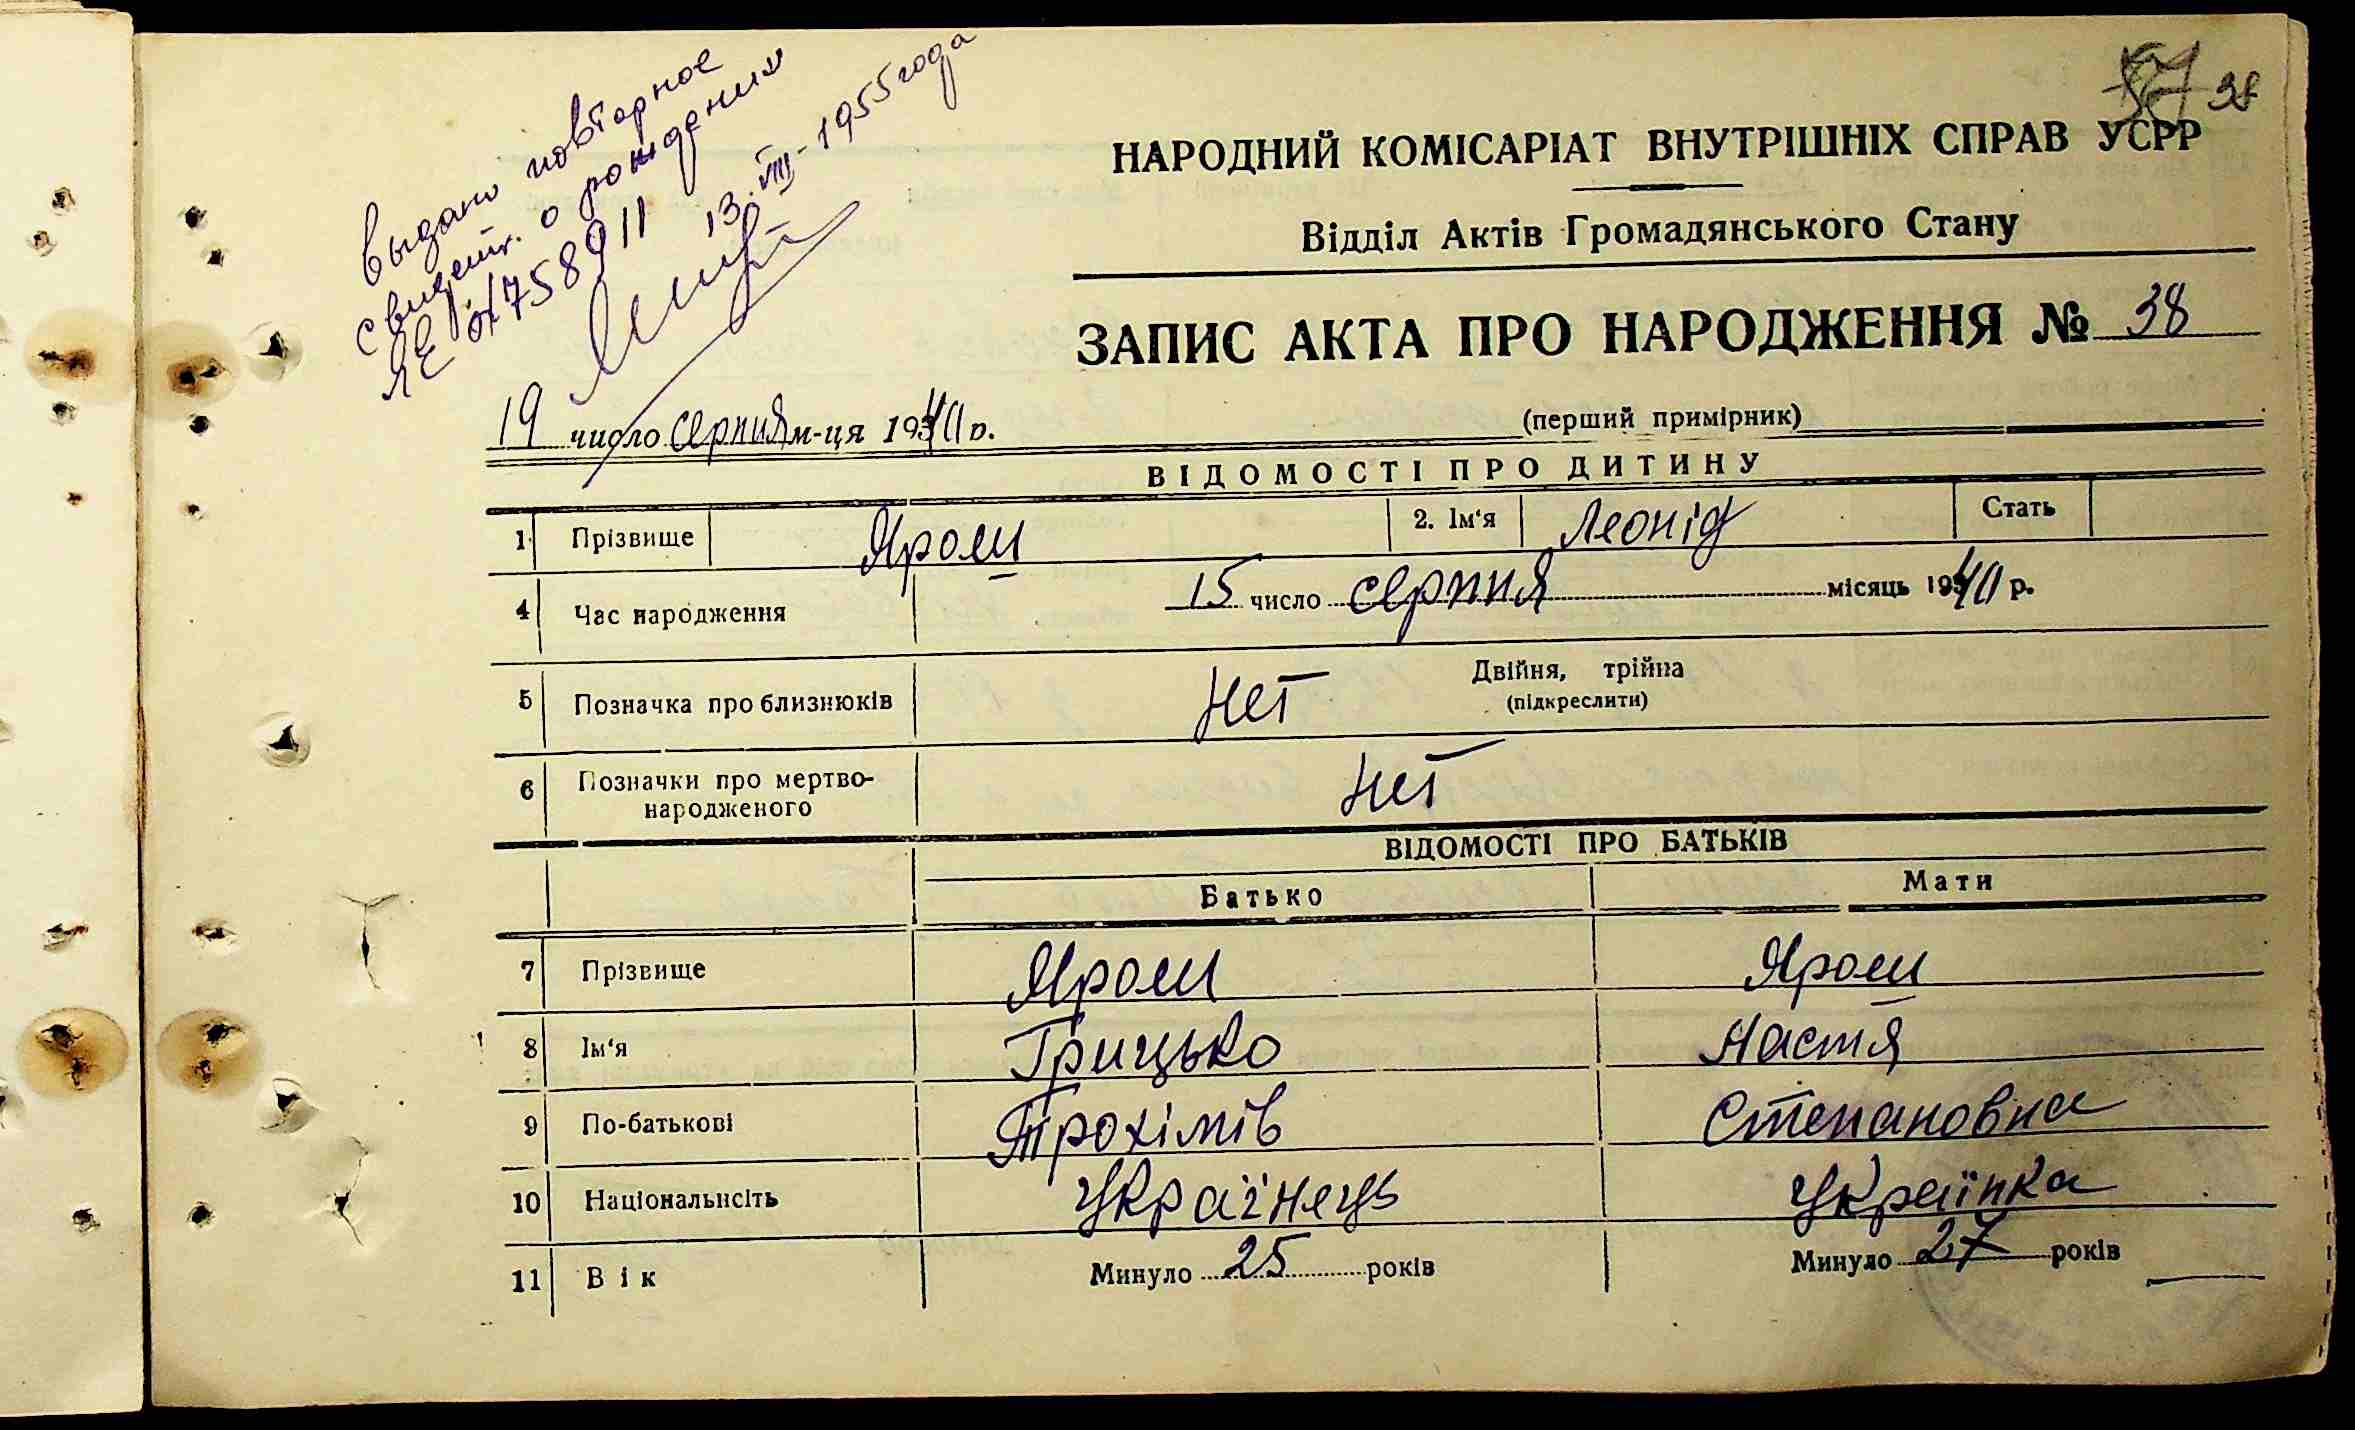 выдано повторное
свидет. о рождении
ЛЕ № 758911 13.VIII-1955 года
57 38
НАРОДНИЙ КОМІСАРІАТ ВНУТРІШНІХ СПРАВ УСРР
Відділ Актів Громадянського Стану
ЗАПИС АКТА ПРО НАРОДЖЕННЯ № 38
19 число серпня м-ця 1940 р. (перший примірник)
ВІДОМОСТІ ПРО ДИТИНУ
1 Прізвище Яром 2. Ім‘я Леонід Стать
4 Час народження 15 число серпня місяць 1940 р.
5 Позначка про близнюків Нет Двійня, трійна
(підкреслити)
6 Позначки про мертво-
народженого Нет
ВІДОМОСТІ ПРО БАТЬКІВ
Батько Мати
7 Прізвище Яром Яром
8 Ім‘я Грицько Настя
9 По-батькові Трохімів Степановна
10 Національнсіть Українець Українка
11 Вік Минуло 25 років Минуло 27 років